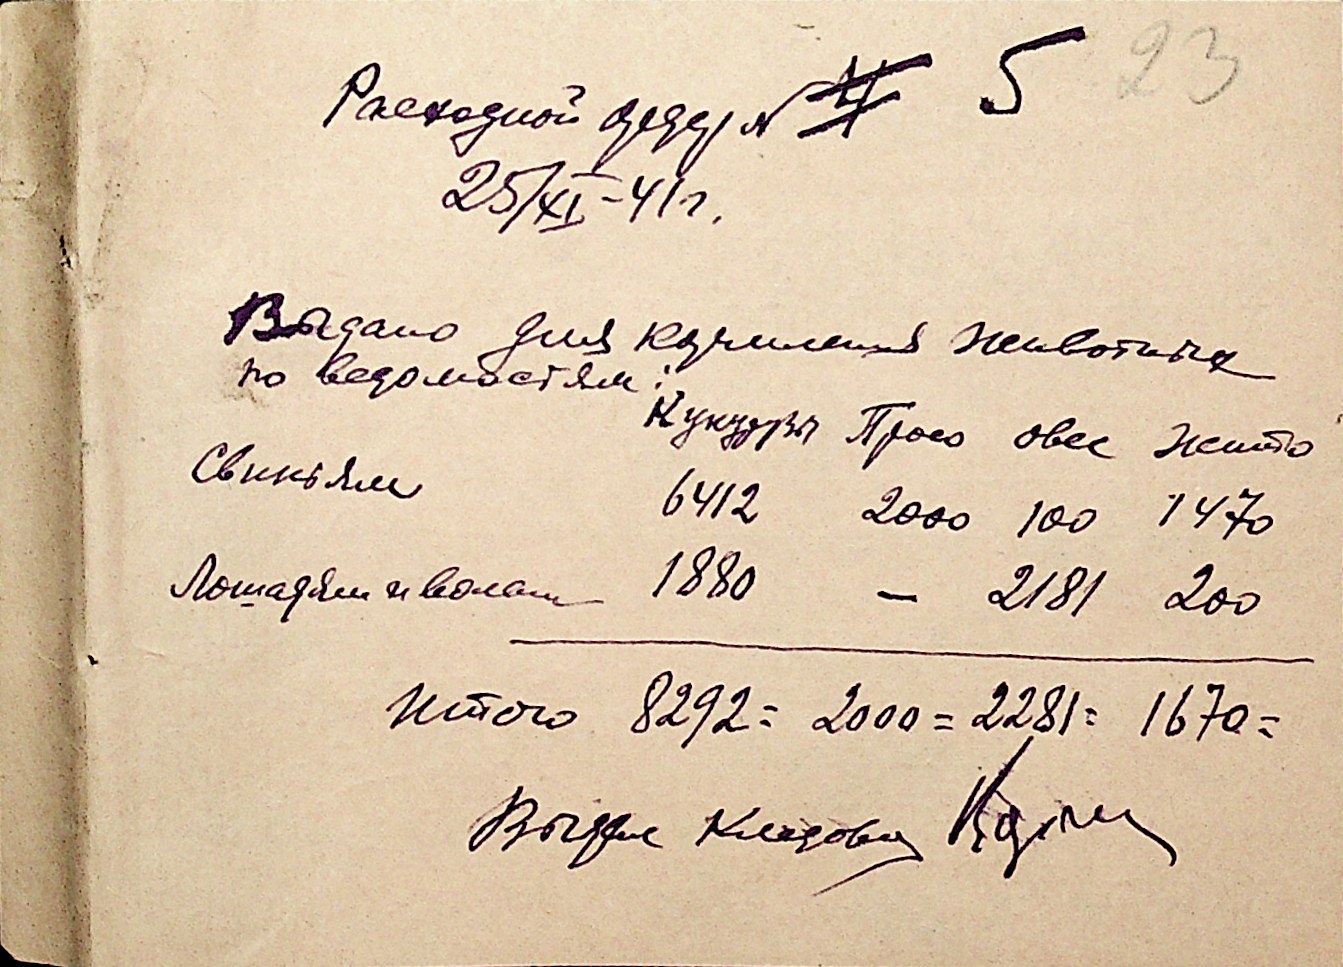 23
Расходной ордер № 5
25/XI-41г.
Выдано для кормления животных
по ведомостям:
Кукурузы Просо овес жито
Свиньям 6412 2000 100 1470
Лошадям и волам 1880 — 2181 200
Итого 8292= 2000= 2281= 1670=
Выдал Кладовщ